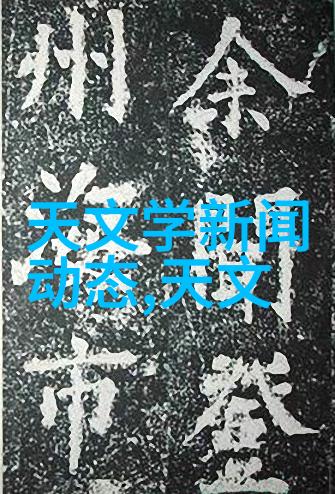 余
登
州
市
天文学新闻
动态,天文